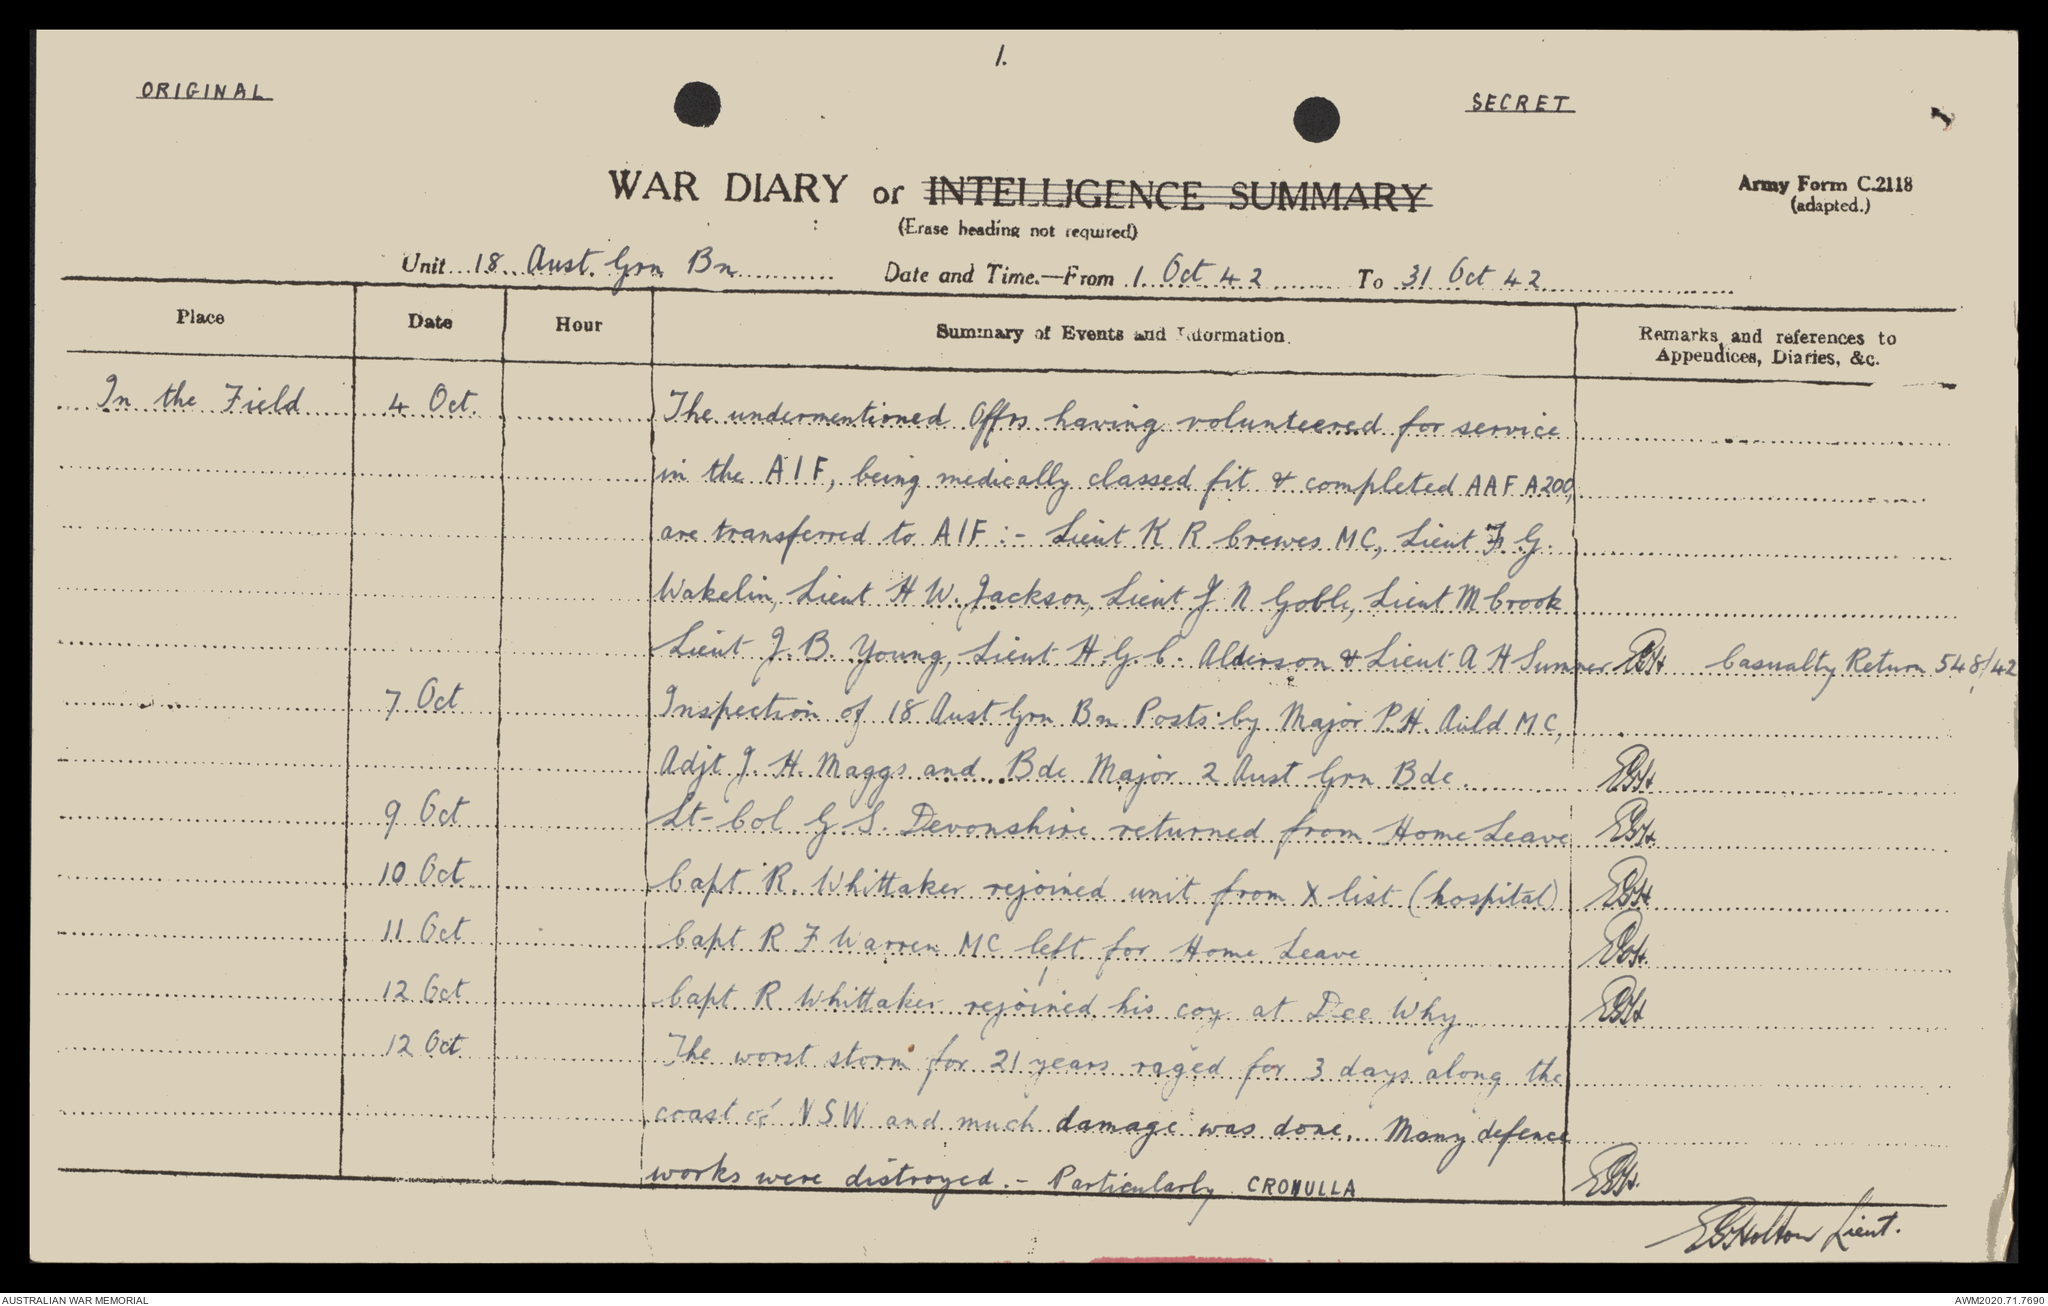 1.
ORIGINAL
SECRET
WAR DIARY or INTELLIGENCE SUMMARY
(Erase heading not required)
Army Form C.2118
(adapted.)
Unit 18 Aust. Grn Bn Date and Time.—From 1 Oct 42 To 31 Oct 42
Place Date Hour Summary of Events and Information Remarks and references to
Appendices, Diaries, &c.
In the Field 4 Oct. The undermentioned Offrs having volunteered for service
in the AIF, being medically classed fit & completed AAF A200,
are transferred to AIF :- Lieut K R Crewes MC, Lieut F. G.
Wakelin, Lieut H W. Jackson, Lieut J N Goble, Lieut M Crook
Lieut J. B. Young, Lieut H. G. C. Alderson & Lieut A H Sumner EGH Casualty Return 548/42
7 Oct Inspection of 18 Aust Grn Bn Posts by Major P. H. Auld MC,
Adjt J. H. Maggs and Bde Major 2 Aust Grn Bde. EGH
9 Oct Lt-Col G S. Devonshire returned from Home Leave EGH
10 Oct Capt R. Whittaker rejoined unit from X list (hospital) EGH
11 Oct Capt R F Warren MC left for Home Leave EGH
12 Oct Capt R Whittaker rejoined his coy at Dee Why EGH
12 Oct The worst storm for 21 years raged for 3 days along the
coast of NSW and much damage was done. Many defence
works were distroyed. - Particularly CRONULLA EGH
EGHolton Lieut.
AUSTRALIAN WAR MEMORIAL
AWM2020.71.7690